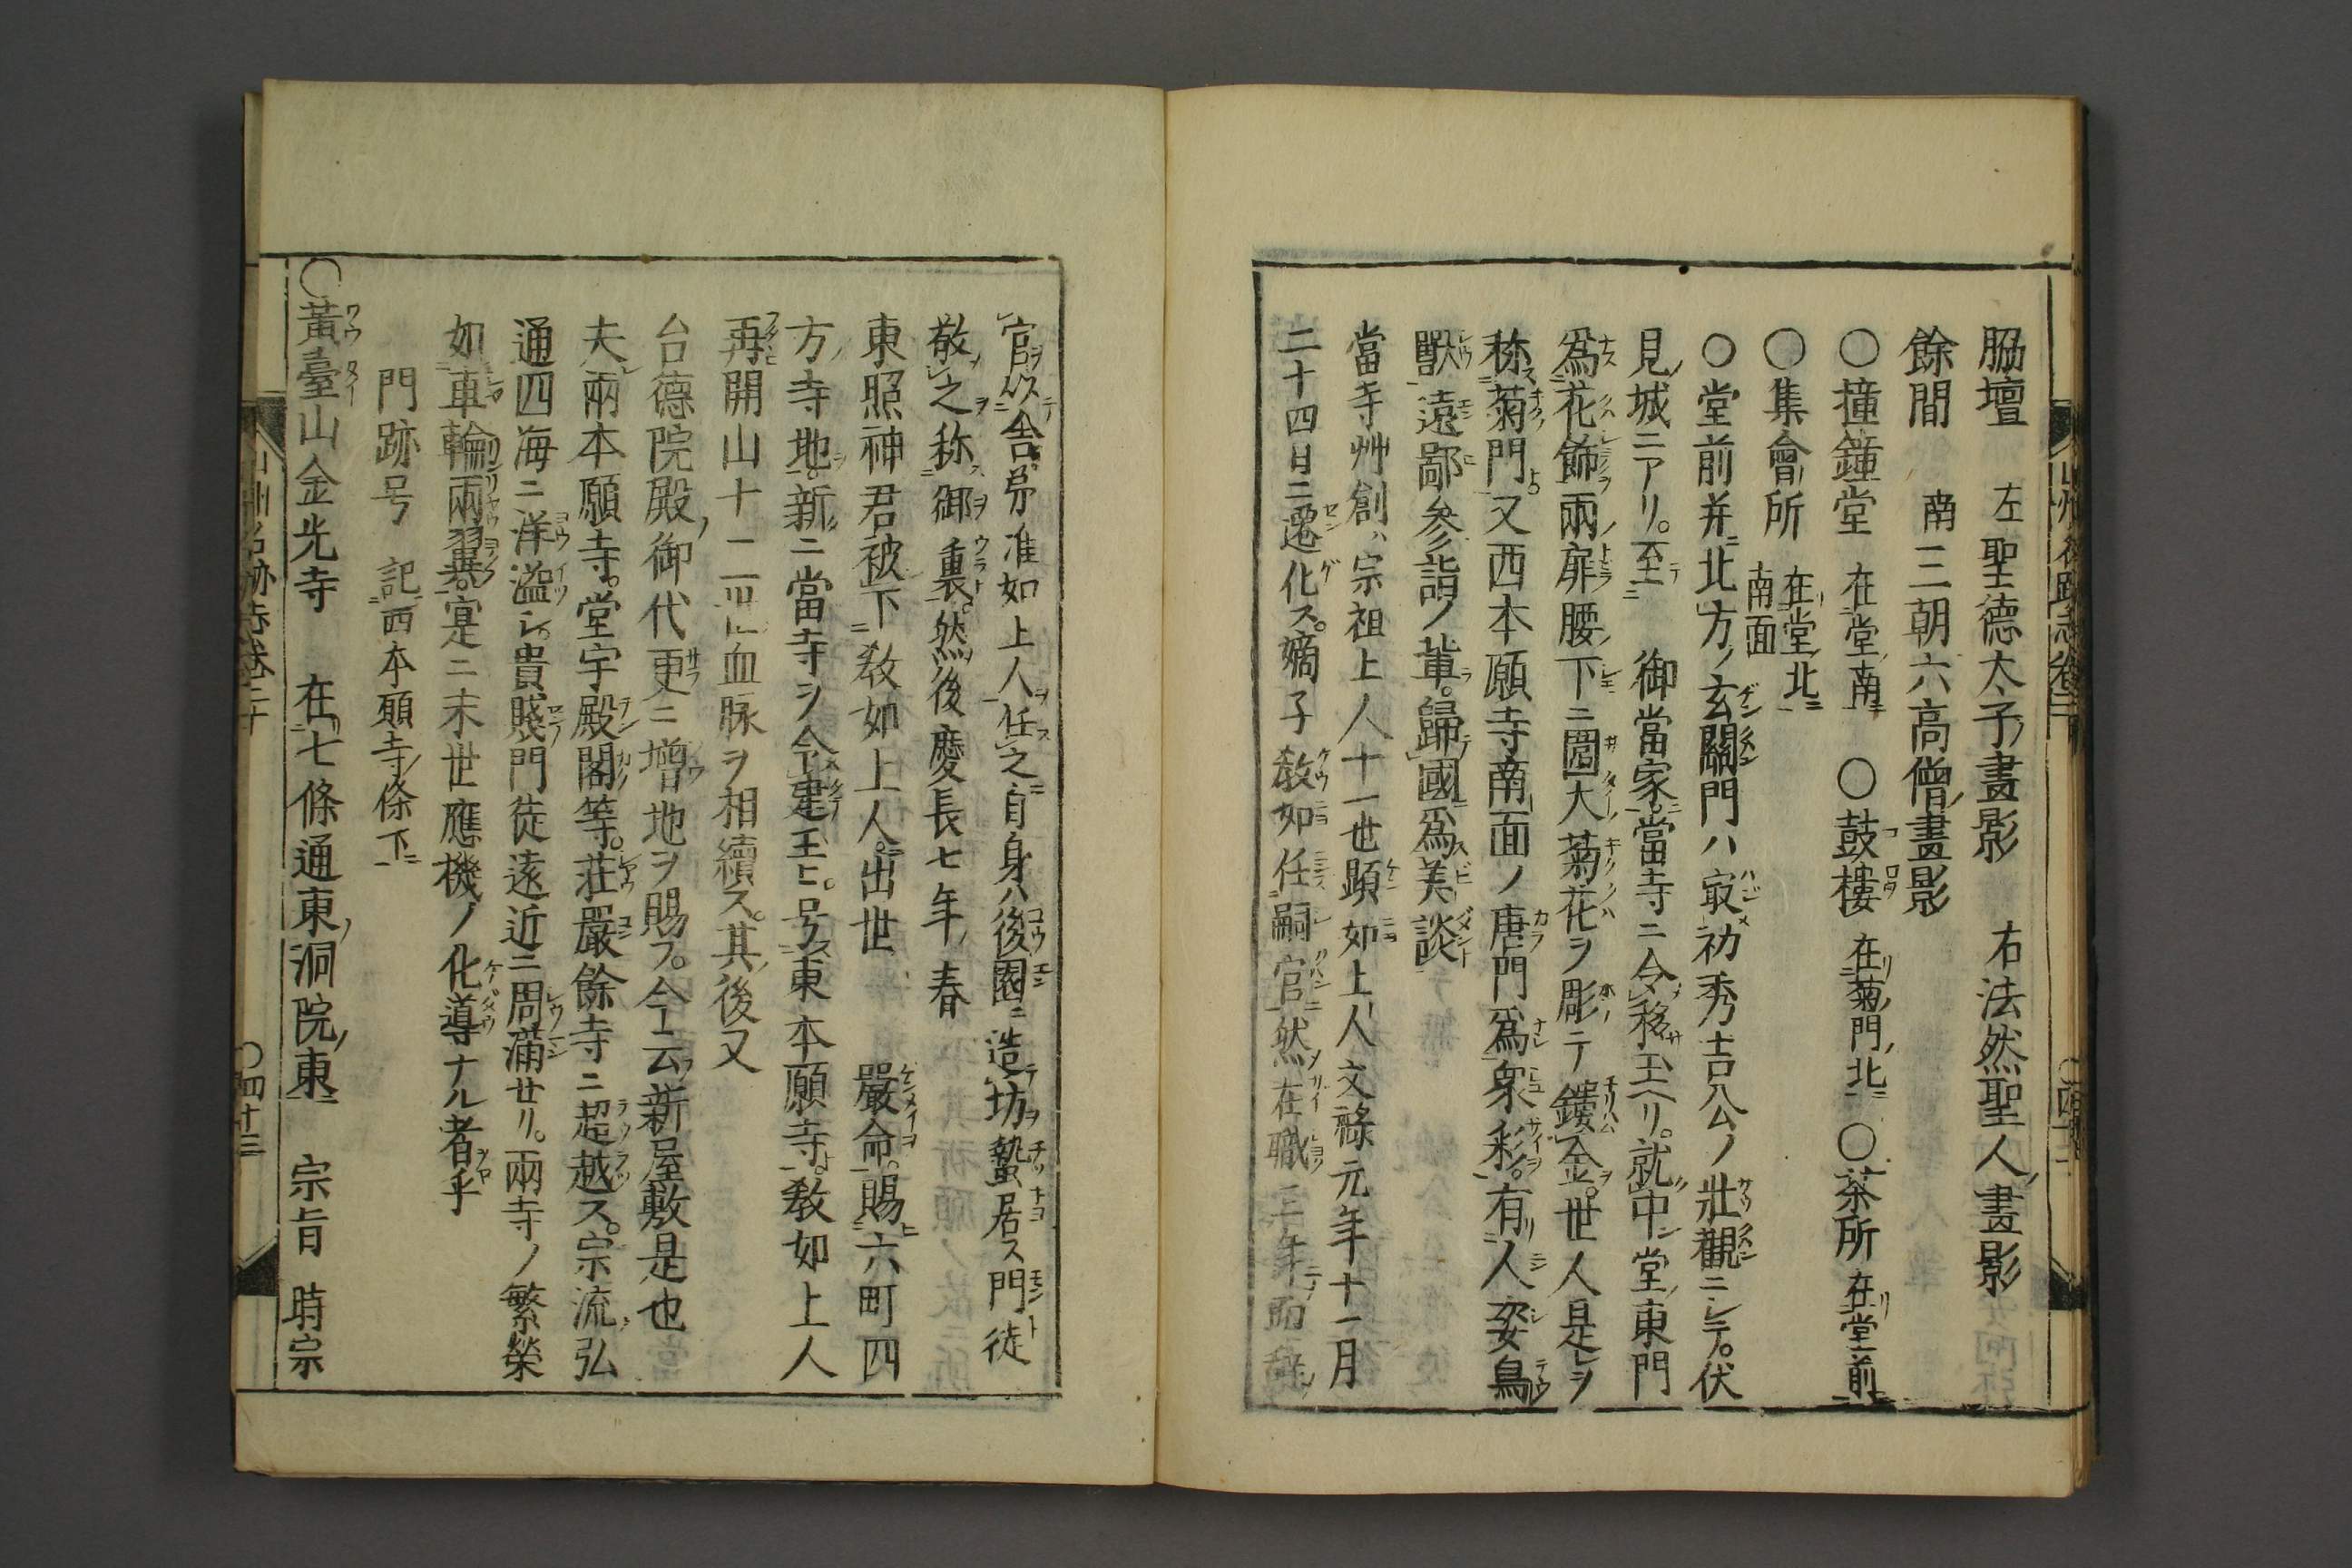 脇壇 左聖德太子畫影 右法然聖人畫影
餘間 南三朝六高僧畫影
○撞鐘堂 在堂南 ○鼓樓 在菊門北 ○茶所 在堂前
○集會所 在堂北南面
○堂前并北方ノ玄關門ハ最初秀吉公ノ壯觀ニシテ。伏
見城ニアリ。至 御當家。當寺ニ令移玉ヘリ。就中堂東門
爲花飾兩扉腰下ニ圓大菊花ヲ彫テ鏤金。世人是ヲ
称菊門。又西本願寺南面ノ唐門爲衆彩。有人姿鳥
獸遠鄙參詣ノ輩。歸國爲美談
當寺艸創ハ宗祖上人十一世顯如上人文祿元年十一月
二十四日ニ遷化ス。嫡子教如任嗣官然在職三年而辞
官以舎弟准如上人任之自身ハ後園ニ造坊蟄居ス門徒
敬之称御裏。然後慶長七年春 嚴命。賜六町四
東照神君被下教如上人。出世
方寺地。新ニ當寺ヲ令建玉ヒ。号東本願寺。教如上人
再開山十二世血脉ヲ相續ス。其後又
台德院殿御代更ニ増地ヲ賜フ。今云新屋敷是也
夫兩本願寺。堂宇殿閣等。荘嚴餘寺ニ超越ス。宗流弘
通四海ニ洋溢シ。貴賤門徒遠近ニ周滿セリ。兩寺ノ繁榮
如車輪兩翼。寔ニ末世應機ノ化導ナル者乎
門跡号 記西本願寺條下
○黄臺山金光寺 在七條通東洞院東 宗旨 時宗
山州名跡志巻二十 ○四十三